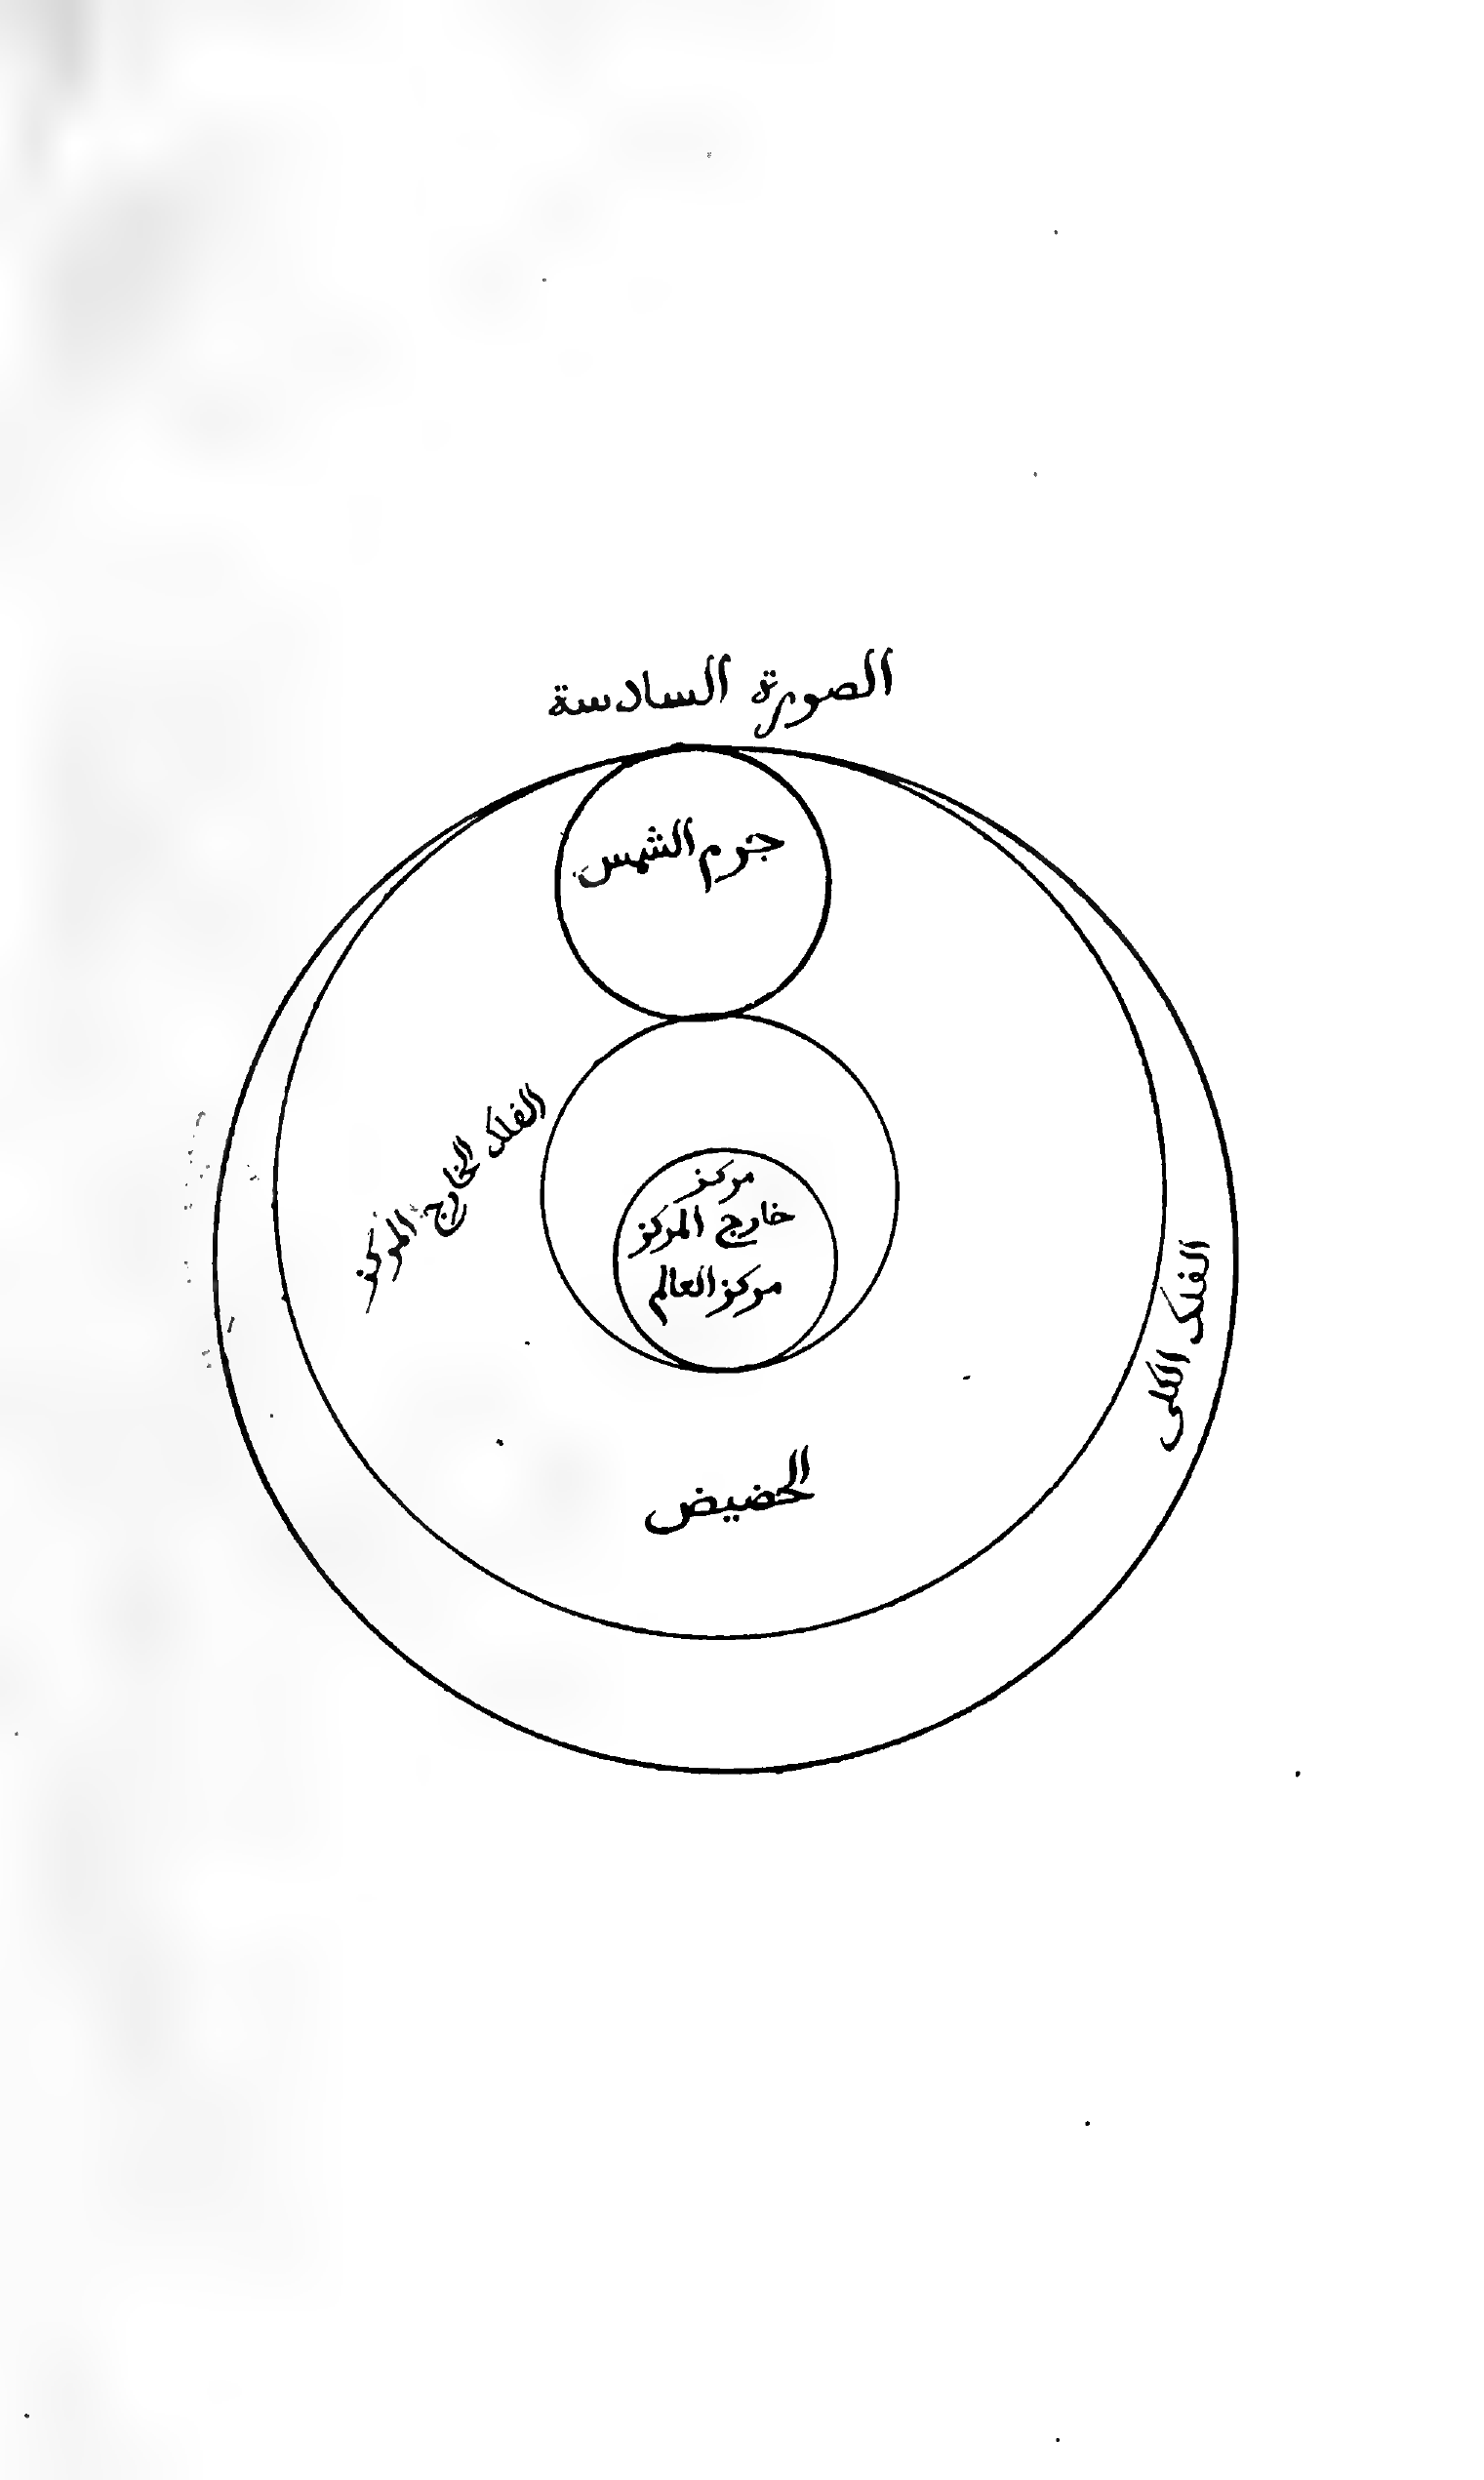 الصورة السادسة
جرم الشمس
الفلك الخارج المركز
مركز
خارج المركز
مركز العالم
الفلك الكلى
الحضيض